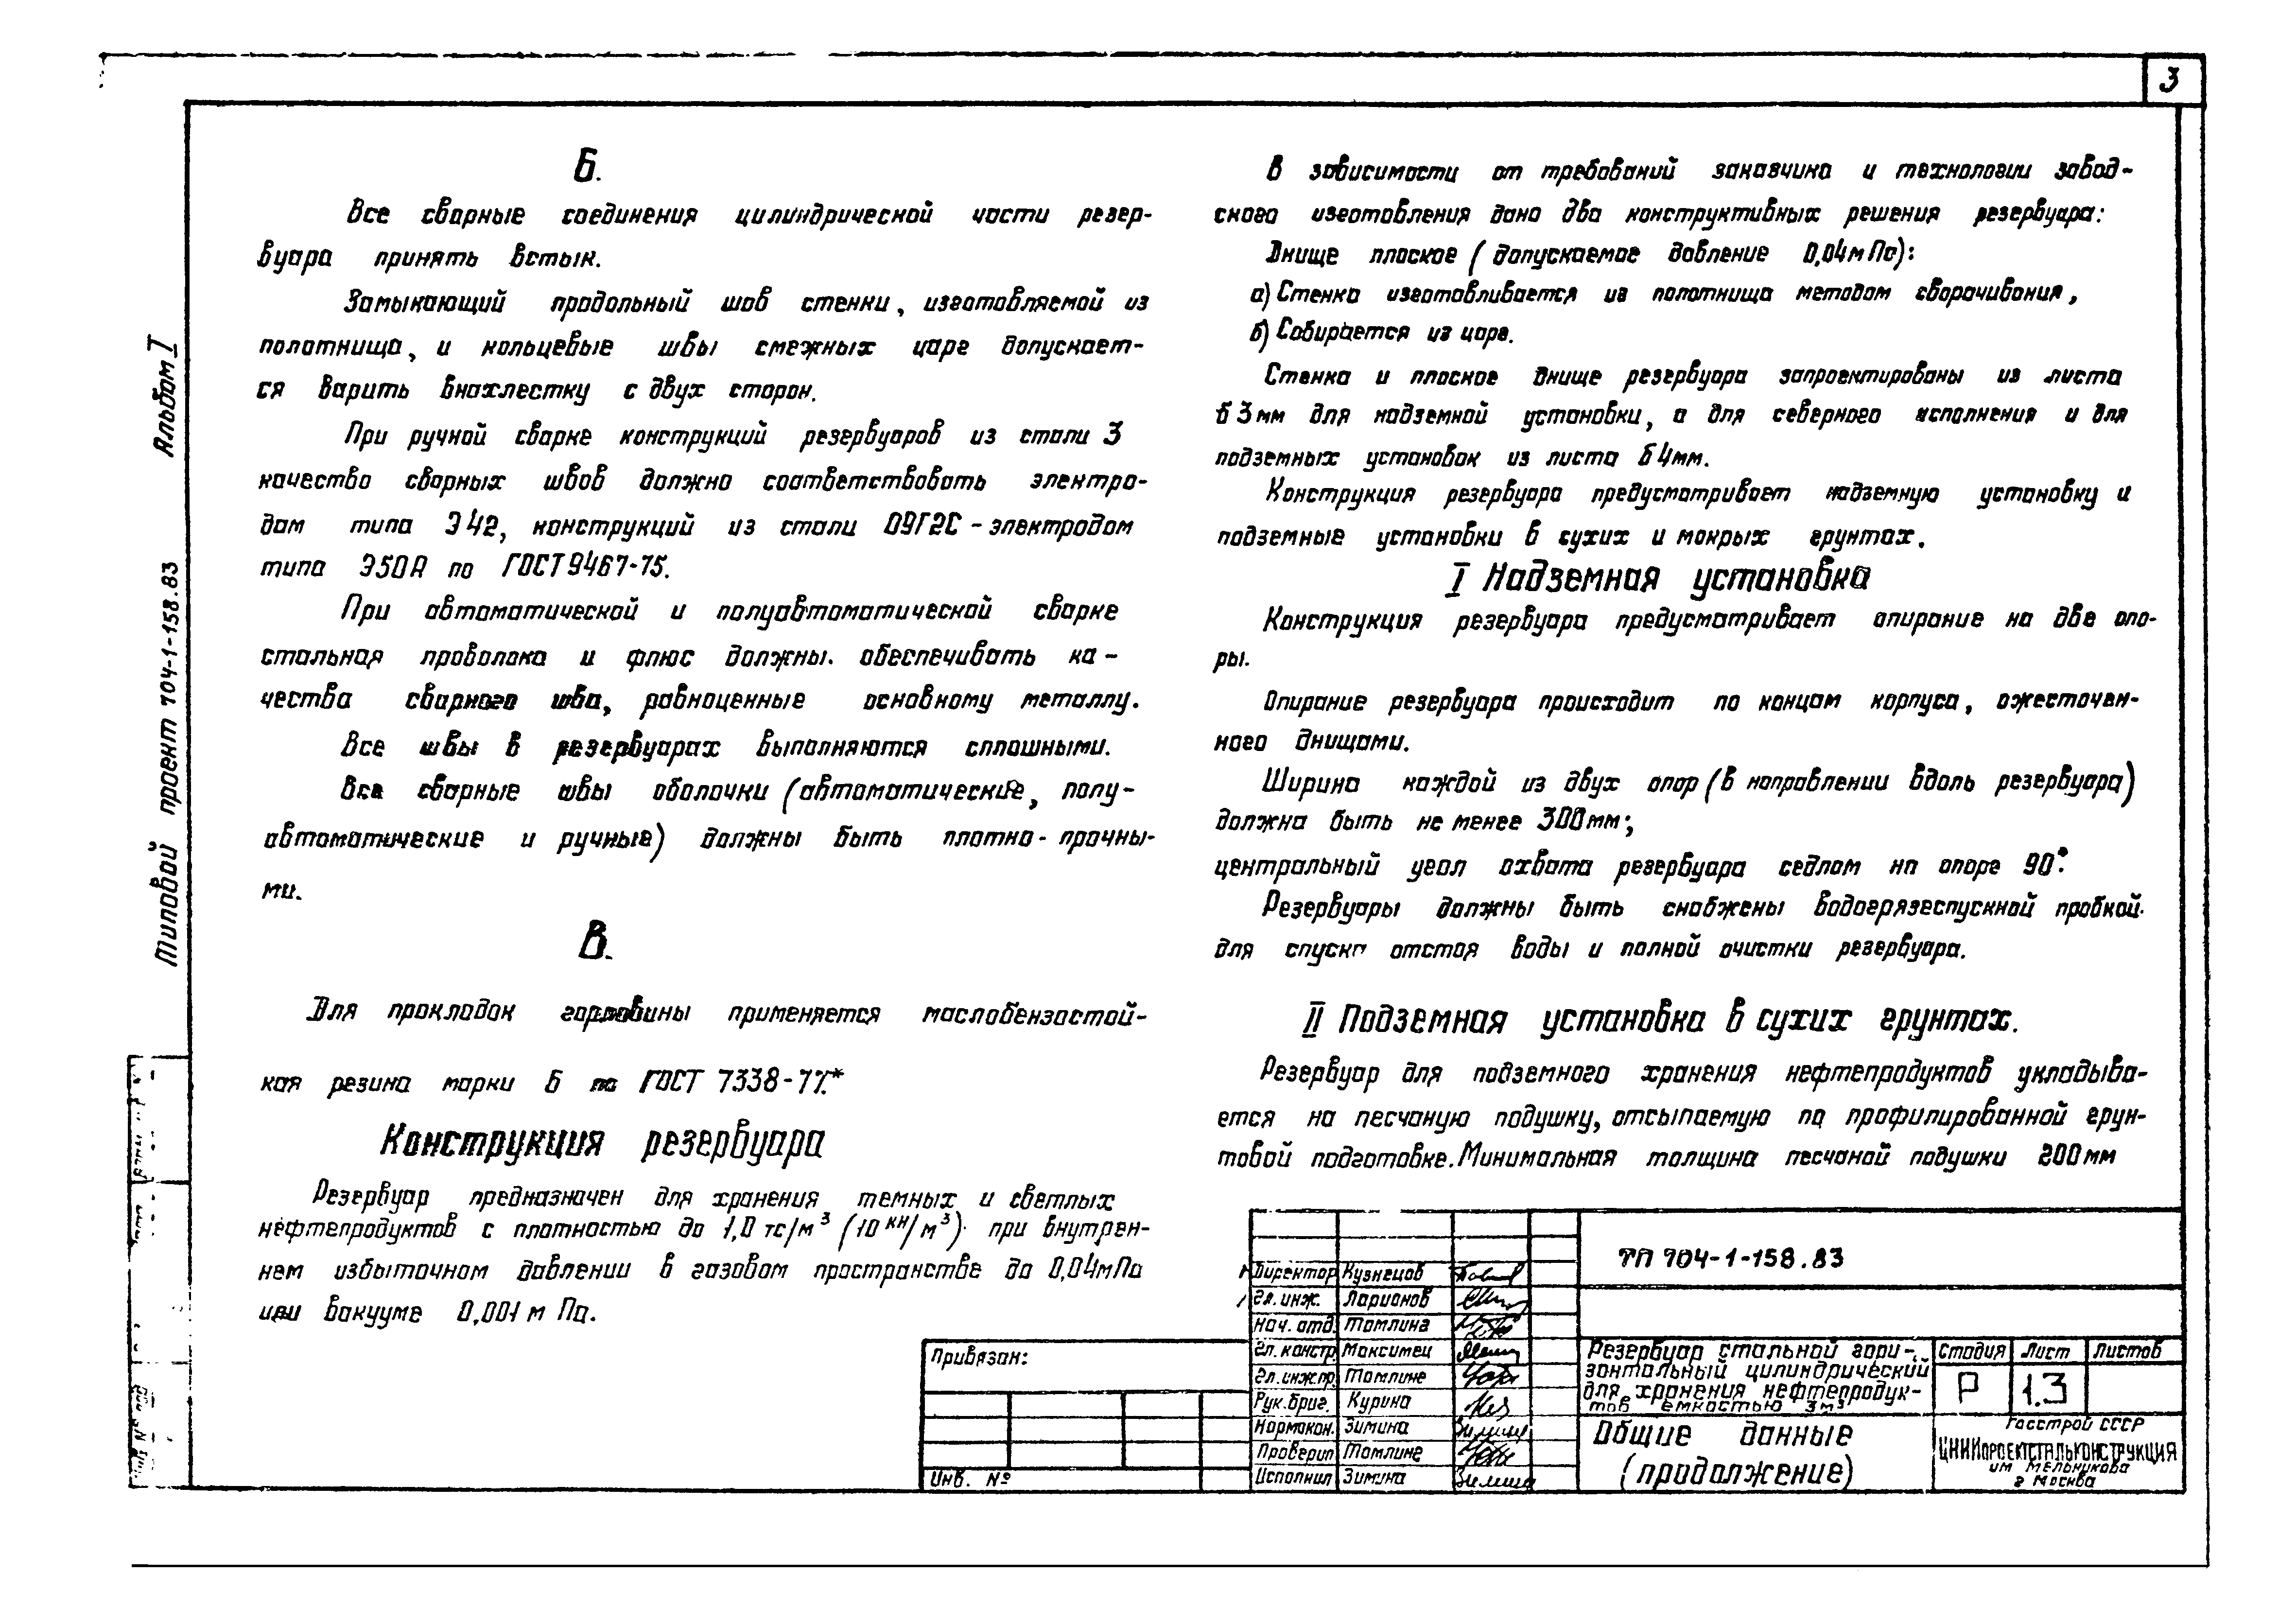 3
Альбом I
Типовой проект 704-1-158.83
Б.
Все сварные соединения цилиндрической части резер-
вуара принять встык.
Замыкающий продольный шов стенки, изготовляемой из
полотнища, и кольцевые швы смежных царг допускает-
ся варить внахлестку с двух сторон.
При ручной сварке конструкций резервуаров из стали 3
качество сварных швов должно соответствовать электро-
дам типа Э42, конструкций из стали 09Г2С - электродом
типа Э50А по ГОСТ 9467-75.
При автоматической и полуавтоматической сварке
стальная проволока и флюс должны обеспечивать ка-
чества сварного шва, равноценные основному металлу.
Все швы в резервуарах выполняются сплошными.
Все сварные швы оболочки (автоматические, полу-
автоматические и ручные) должны быть плотно-прочны-
ми.
В.
Для прокладок горловины применяется маслобензостой-
кая резина марки Б по ГОСТ 7338-77.*
Конструкция резервуара
Резервуар предназначен для хранения темных и светлых
нефтепродуктов с плотностью до 1,0 тс/м³ (10 кн/м³) при внутрен-
нем избыточном давлении в газовом пространстве до 0,04мПа
или вакууме 0,001 м Па.
В зависимости от требований заказчика и технологии завод-
ского изготовления дано два конструктивных решения резервуара:
Днище плоское (допускаемое давление 0,04мПа):
а) Стенка изготавливается из полотнища методом сворачивания,
б) Собирается из царг.
Стенка и плоское днище резервуара запроектированы из листа
б 3мм для надземной установки, а для северного исполнения и для
подземных установок из листа б 4мм.
Конструкция резервуара предусматривает надземную установку и
подземные установки в сухих и мокрых грунтах.
I Надземная установка
Конструкция резервуара предусматривает опирание на две опо-
ры.
Опирание резервуара происходит по концам корпуса, ожесточен-
ного днищами.
Ширина каждой из двух опор (в направлении вдоль резервуара)
должна быть не менее 300мм;
центральный угол охвата резервуара седлом на опоре 90°.
Резервуары должны быть снабжены водогрязеспускной пробкой
для спуска отстоя воды и полной очистки резервуара.
II Подземная установка в сухих грунтах.
Резервуар для подземного хранения нефтепродуктов укладыва-
ется на песчаную подушку, отсыпаемую по профилированной грун-
товой подготовке. Минимальная толщина песчаной подушки 200мм
Привязан:
Инв. №
Директор Кузнецов
Гл. инж. Ларионов
Нач. отд. Томлина
Гл. констр. Максимец
Гл. инж.пр. Томлине
Рук. бриг. Курина
Нормокон. Зимина
Проверил Томлине
Исполнил Зимина
ТП 704-1-158.83
Резервуар стальной гори-
зонтальный цилиндрический
для хранения нефтепродук-
тов емкостью 3м³
Стадия Лист Листов
Р 1.3
Общие данные
(продолжение)
Госстрой СССР
ЦНИИПРОЕКТСТАЛЬКОНСТРУКЦИЯ
им Мельникова
г Москва